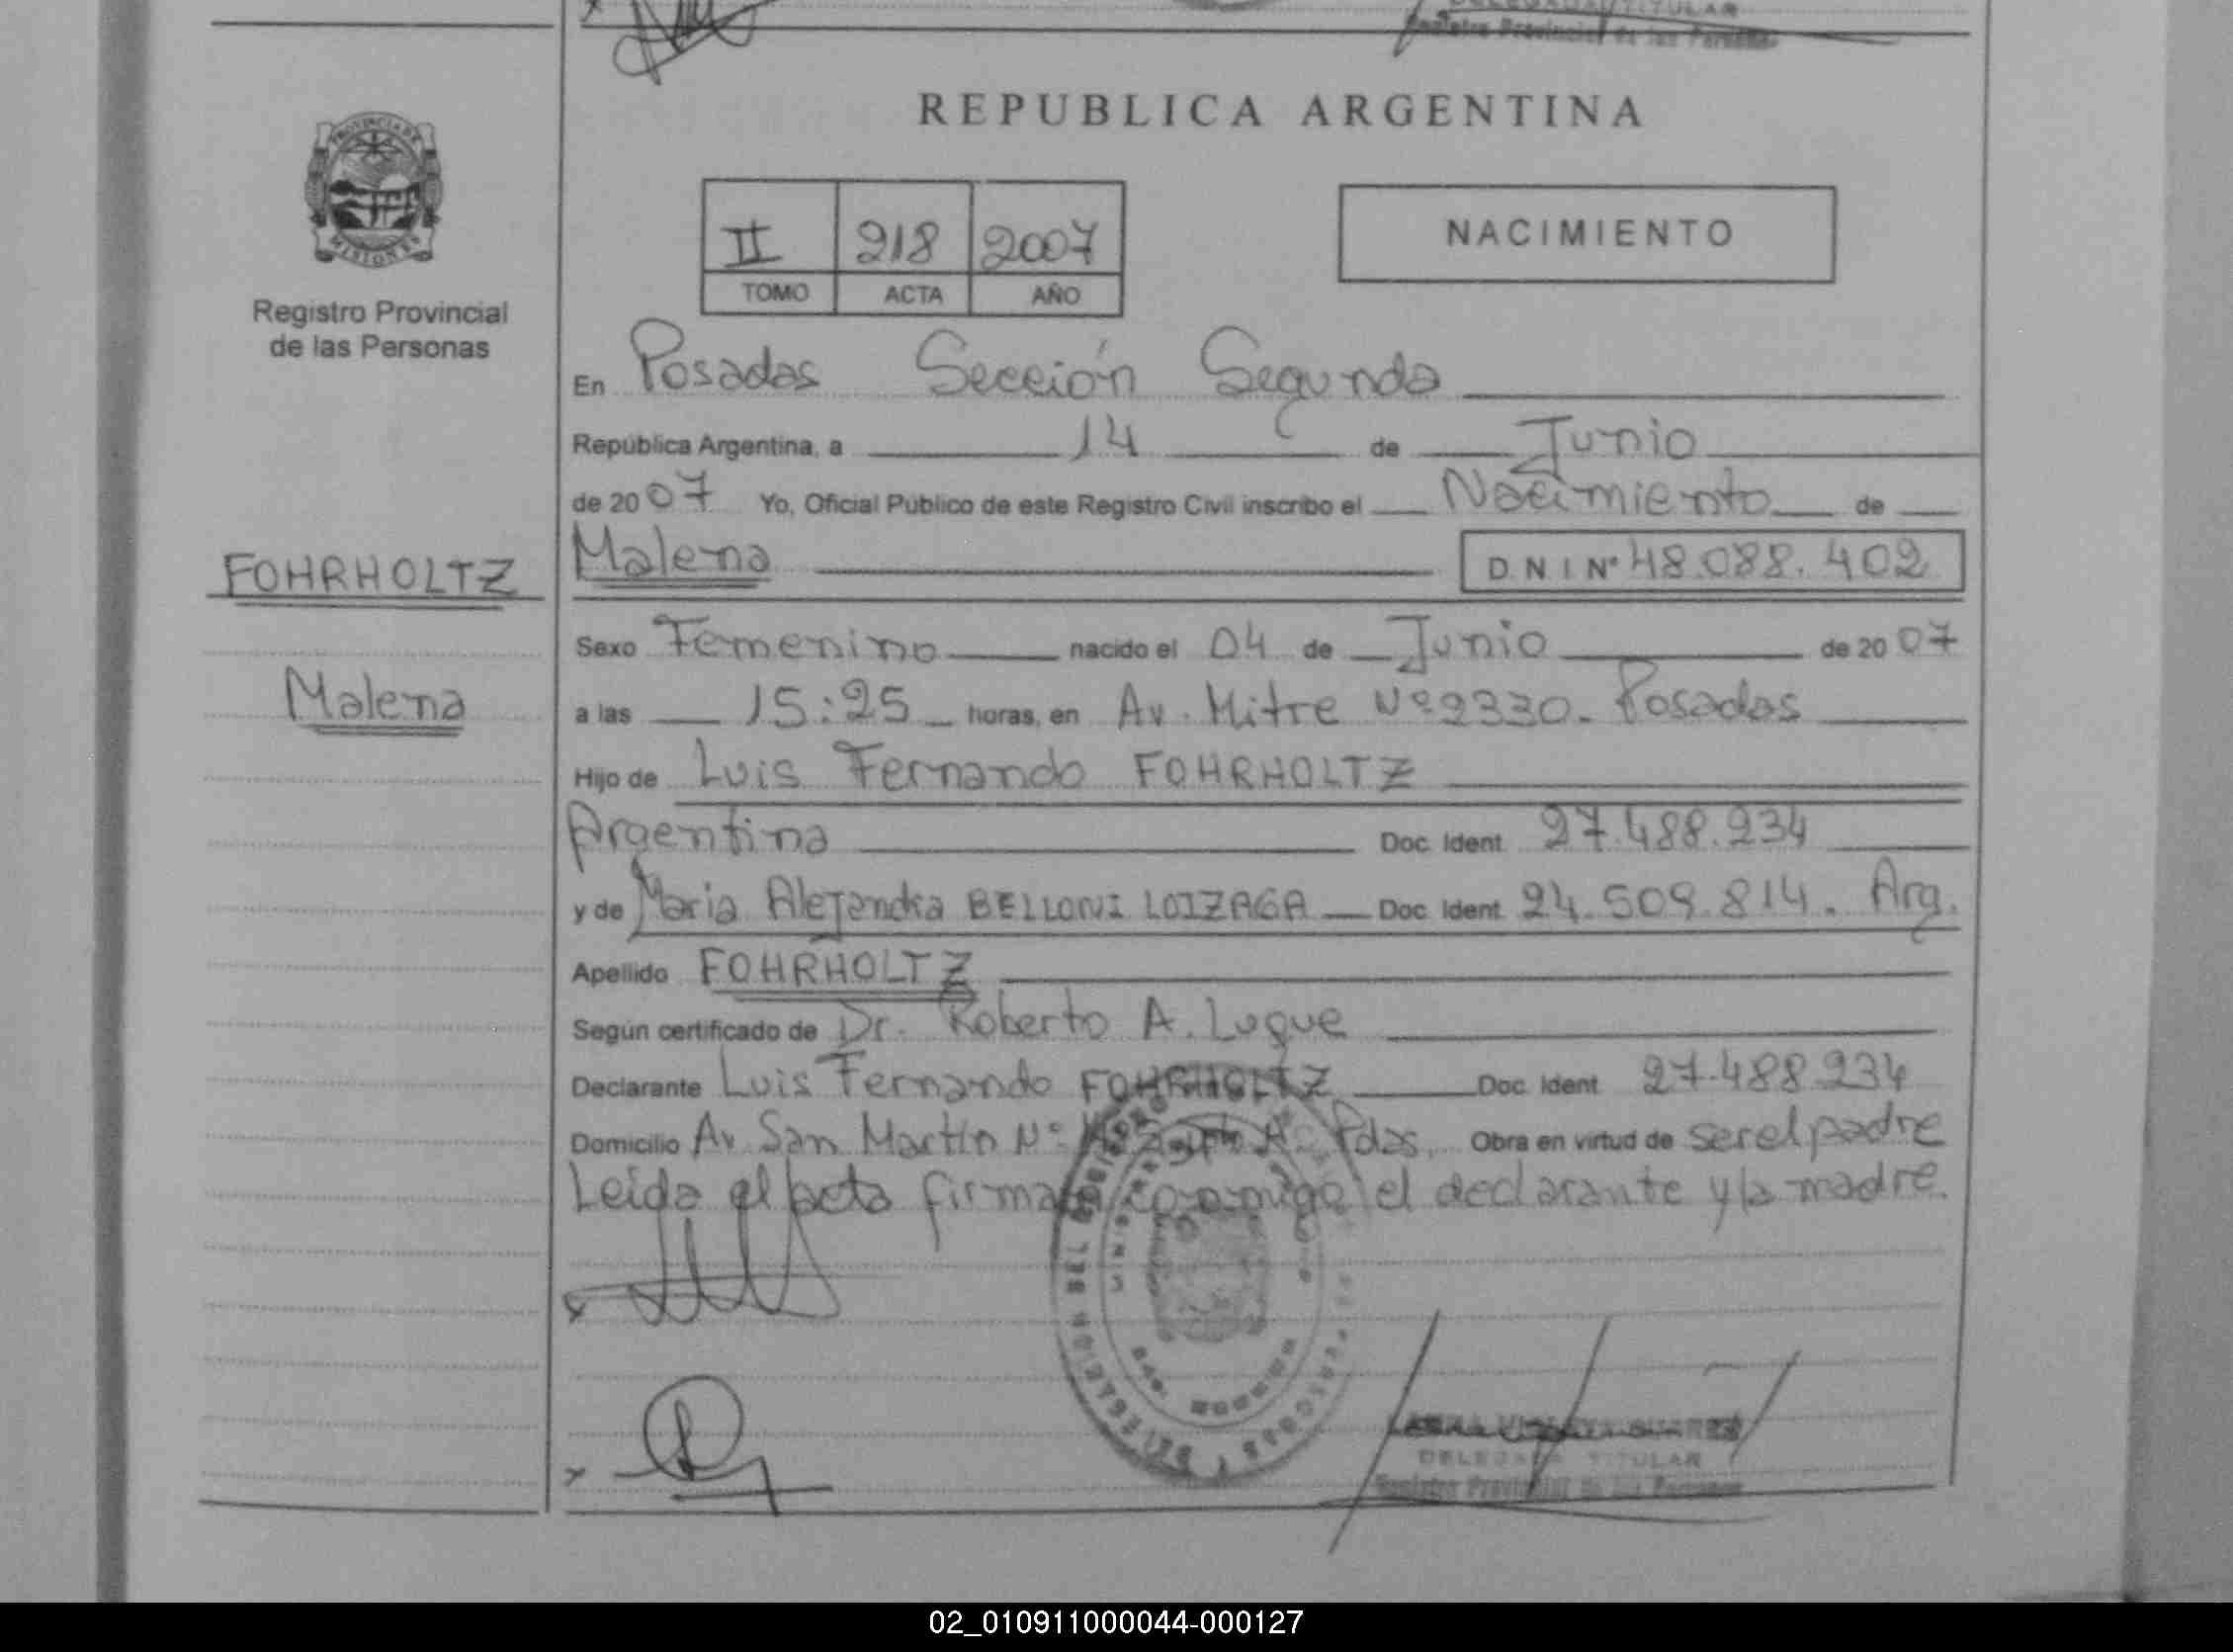 DELEGADA TITULAR
Registro Provincial de las Personas
PROVINCIA DE
MISIONES
Registro Provincial
de las Personas
FOHRHOLTZ
Malena
REPUBLICA ARGENTINA
II 218 2007
TOMO ACTA AÑO
NACIMIENTO
En Posadas Sección Segunda
República Argentina, a 14 de Junio
de 2007 Yo, Oficial Público de este Registro Civil inscribo el Nacimiento de
Malena D N I Nº 48.088.402
Sexo Femenino nacido el 04 de Junio de 2007
a las 15:25 horas, en Av. Mitre Nº 2330. Posadas
Hijo de Luis Fernando FOHRHOLTZ
Argentina Doc. Ident. 27.488.234
y de Maria Alejandra BELLONI LOIZAGA Doc. Ident. 24.509.814. Arg.
Apellido FOHRHOLTZ
Según certificado de Dr. Roberto A. Luque
Declarante Luis Fernando FOHRHOLTZ Doc. Ident. 27.488.234
Domicilio Av. San Martín Nº Pdas. Obra en virtud de ser el padre
Leída el acta firman conmigo el declarante y la madre.
DELEGADA TITULAR
Registro Provincial de las Personas
02_010911000044-000127